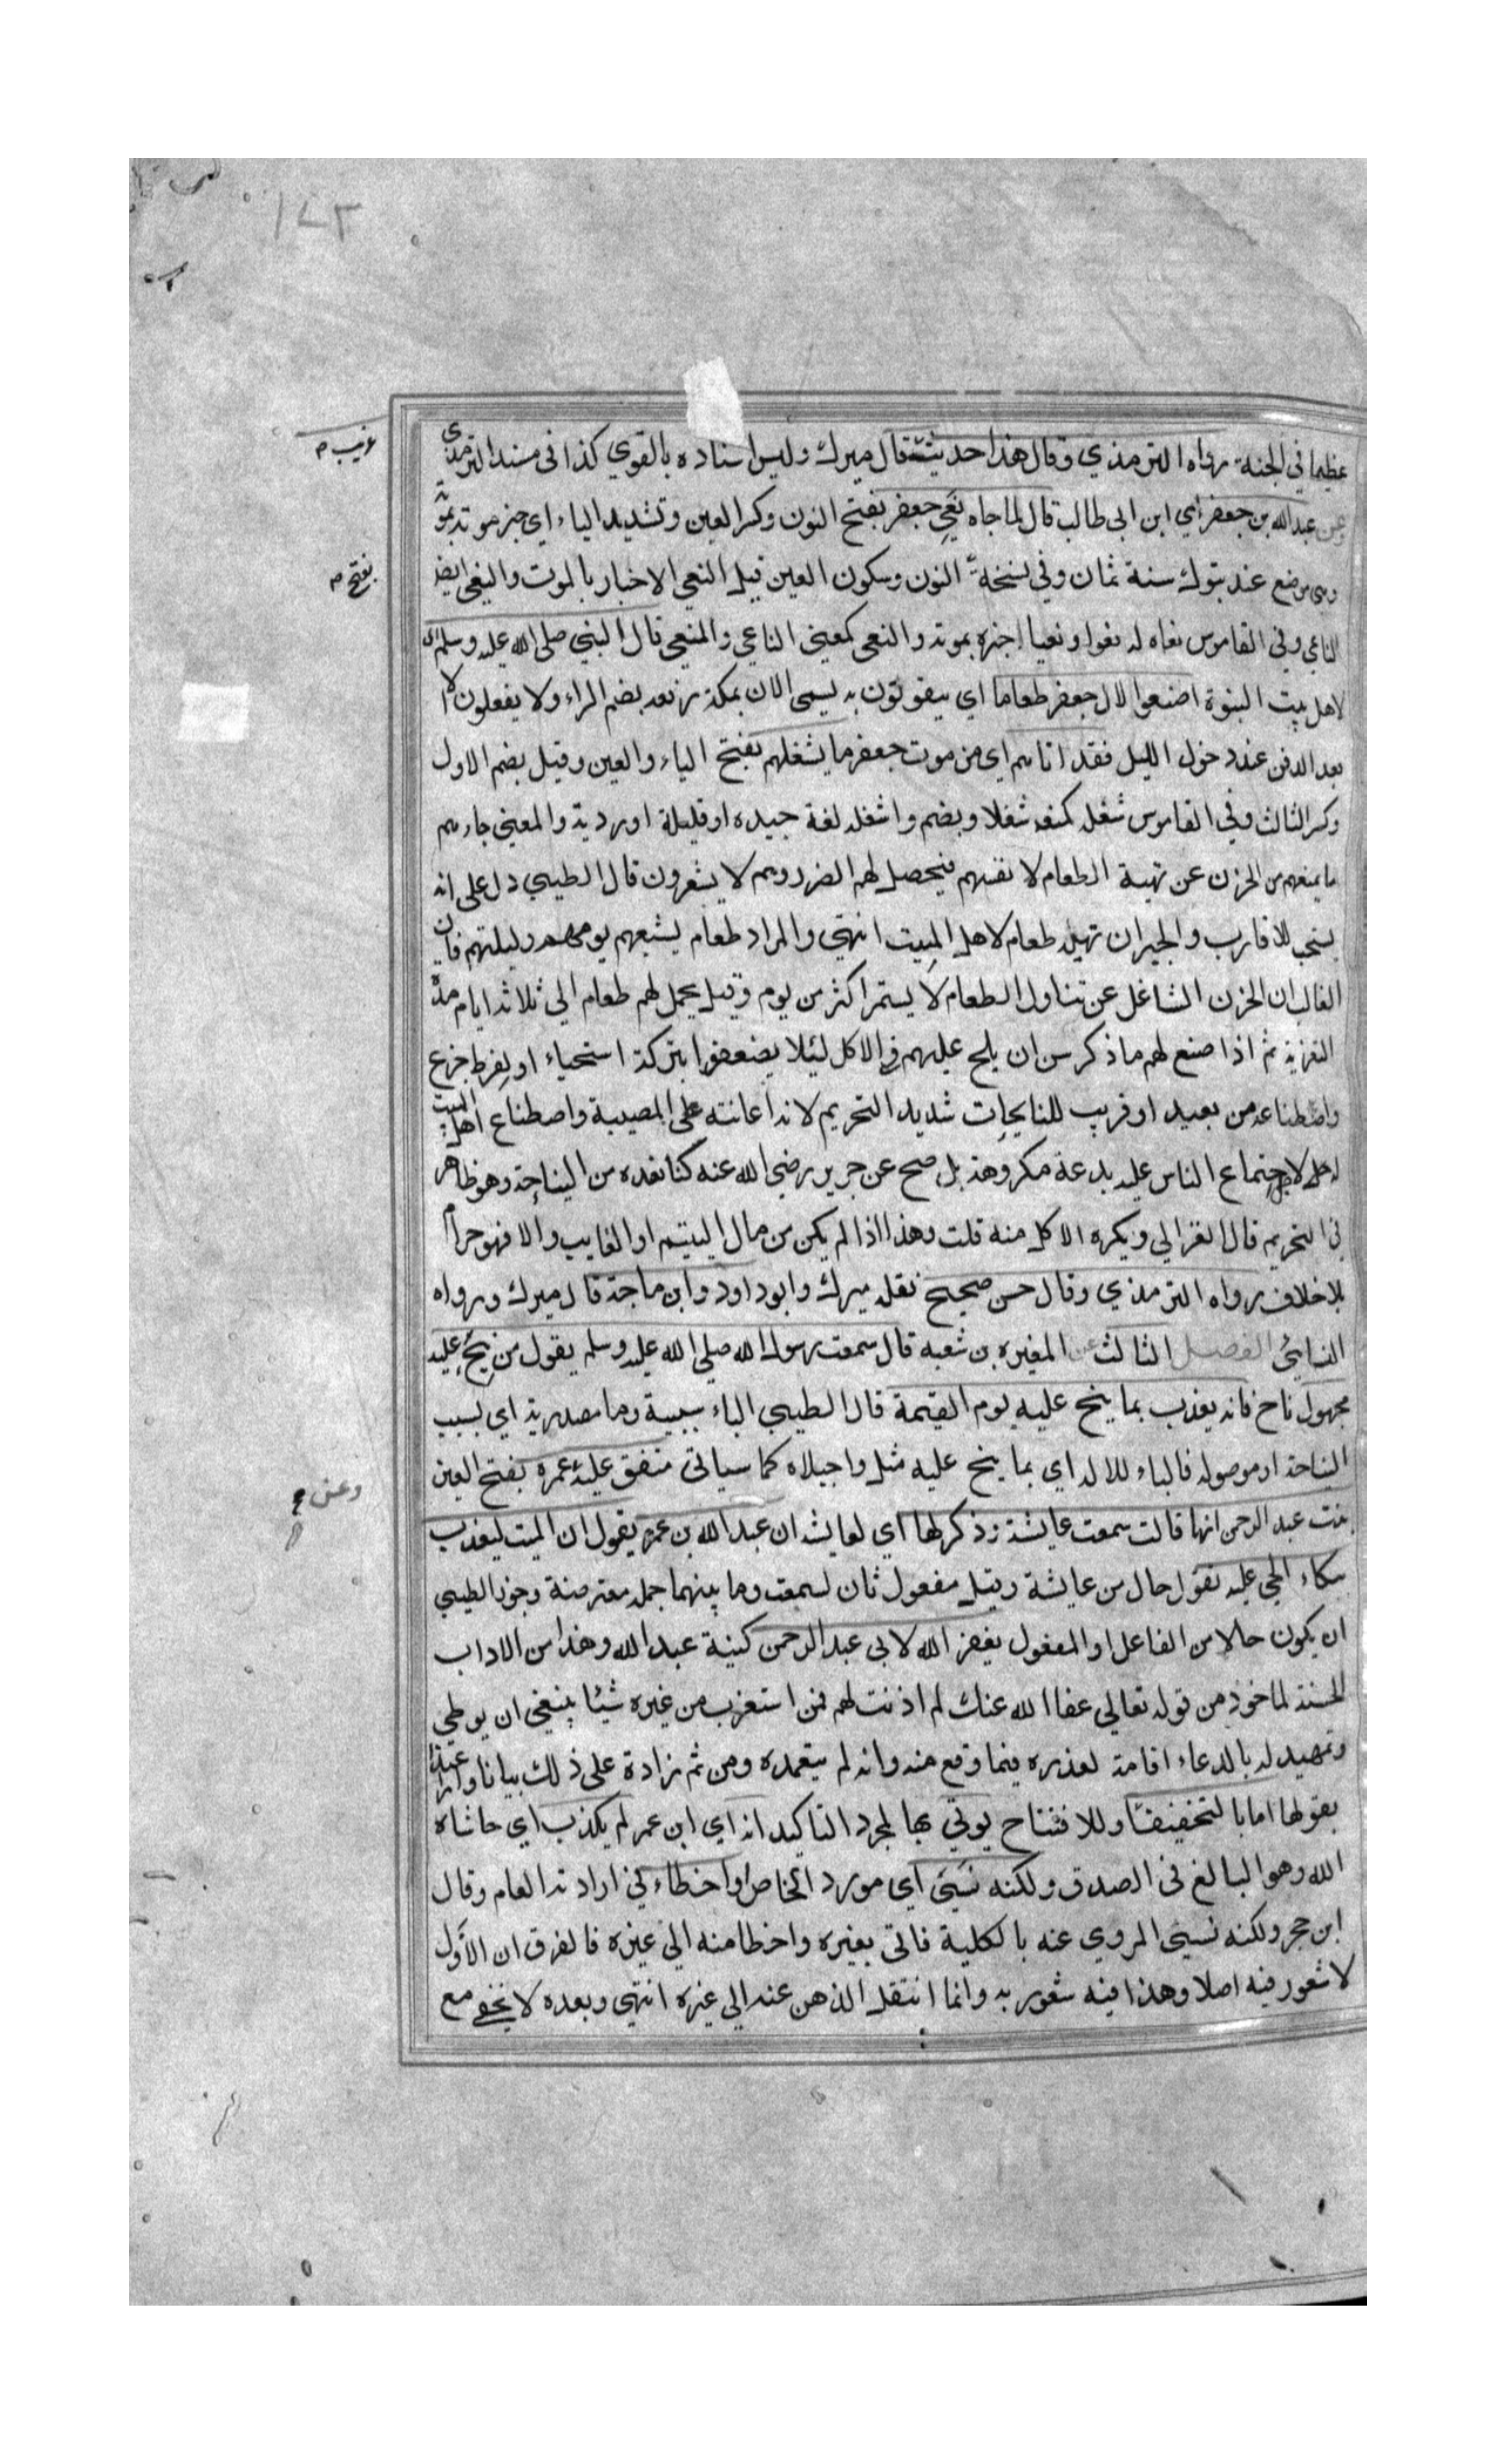 ١٧٣
عظيما في الجنة رواه الترمذي وقال هذا حديث قال ميرك وليس اسناده بالقوي كذا في مسند الترمذي
غريب م
وعن عبد الله بن جعفر اي ابن ابي طالب قال لما جاء نعي جعفر بفتح النون وكسر العين وتشديد الياء اي خبر موته بموتة
وهي موضع عند تبوك سنة ثمان وفي نسخة النون وسكون العين قيل النعي الاخبار بالموت والنعي ايضا
بفتح م
الناعي وفي القاموس نعاه له نعوا ونعيا اخبره بموته والنعي كمعنى الناعي والمنعي قال النبي صلى الله عليه وسلم اي
لاهل بيت النبوة اصنعوا لال جعفر طعاما اي يتقوتون به يسمى الان بمكة رفعه بضم الراء ولا يفعلون الا
بعد الدفن عند دخول الليل فقد اتاهم اي من موت جعفر ما يشغلهم بفتح الياء والعين وقيل بضم الاول
وكسر الثالث وفي القاموس شغله كمنعه شغلا ويضم واشغله لغة جيده او قليلة او رديه والمعنى جاءهم
ما يمنعهم من الحزن عن تهيئة الطعام لانفسهم فيحصل لهم الضرر وهم لا يشعرون قال الطيبي دل على انه
يستحب للاقارب والجيران تهيئه طعام لاهل الميت انتهى والمراد طعام يشبعهم يومهم وليلتهم فان
الغالب ان الحزن الشاغل عن تناول الطعام لا يستمر اكثر من يوم وقيل يحمل لهم طعام الى ثلاثه ايام مدة
التعزيه ثم اذا صنع لهم ما ذكر سن ان يلح عليهم في الاكل لئلا يضعفوا بتركه استحياء او لفرط جزع
واصطناعه من بعيد او قريب للنايحات شديد التحريم لانه اعانته على المصيبة واصطناع اهل الميت
له لاجل اجتماع الناس عليه بدعة مكروهة بل صح عن جرير رضي الله عنه كنا نعده من النياحة وهو ظاهر
في التحريم قال الغزالي ويكره الاكل منه قلت وهذا اذا لم يكن من مال اليتيم او الغايب والا فهو حرام
بلا خلاف رواه الترمذي وقال حسن صحيح نقله ميرك وابو داود وابن ماجة قال ميرك ورواه
النسائي الفصل الثالث عن المغيره بن شعبه قال سمعت رسول الله صلى الله عليه وسلم يقول من نيح عليه
مجهول ناح فانه يعذب بما نيح عليه يوم القيمة قال الطيبي الباء سببية وما مصدريه اي بسبب
النياحة او موصوله فالباء للاله اي بما ينح عليه مثل واجبلاه كما سياتي متفق عليه عمرة بفتح العين
وعن
بنت عبد الرحمن انها قالت سمعت عايشة وذكر لها اي لعايشه ان عبد الله بن عمر يقول ان الميت ليعذب
ببكاء الحي عليه تقول حال من عايشة وقيل مفعول ثان لسمعت وما بينهما جمله معترضة وجوز الطيبي
ان يكون حالا من الفاعل او المفعول يغفر الله لابي عبد الرحمن كنية عبد الله وهذا من الاداب
الحسنة لماخوذ من قوله تعالى عفا الله عنك لم اذنت لهم فمن استغرب من غيره شيئا ينبغي ان يوطي
وتمهيد له بالدعاء اقامة لعذره فيما وقع منه وانه لم يتعمده ومن ثم زادة على ذلك بيانا واعتذارا
بقولها اما بالتخفيف وللافتتاح يوتى بها لمجرد التاكيد انه اي ابن عمر لم يكذب اي حاشاه
الله وهو البالغ في الصدق ولكنه نسي اي مورد الخاص او اخطاء في ارادته العام وقال
ابن حجر ولكنه نسي المروي عنه بالكلية فاتى بغيره واخطا منه الى غيره فالفرق ان الاول
لا شعور فيه اصلا وهذا فيه شعور به وانما انتقل الذهن عنه الى غيره انتهى وبعده لا يخفى مع